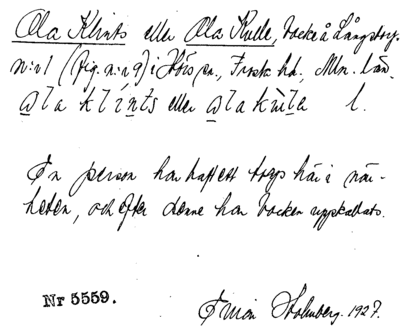 Ola Klints eller Ola Kulle, backe å Långstorp
n:r 1 (fig. n:r 9) i Hörs sn., Frosta hd., Mlm. län.
ola klints eller ola kulle l.
En person har haft ett torp här i när-
heten, och efter denne har backen uppkallats.
Nr 5559.
Holmberg. 1927.